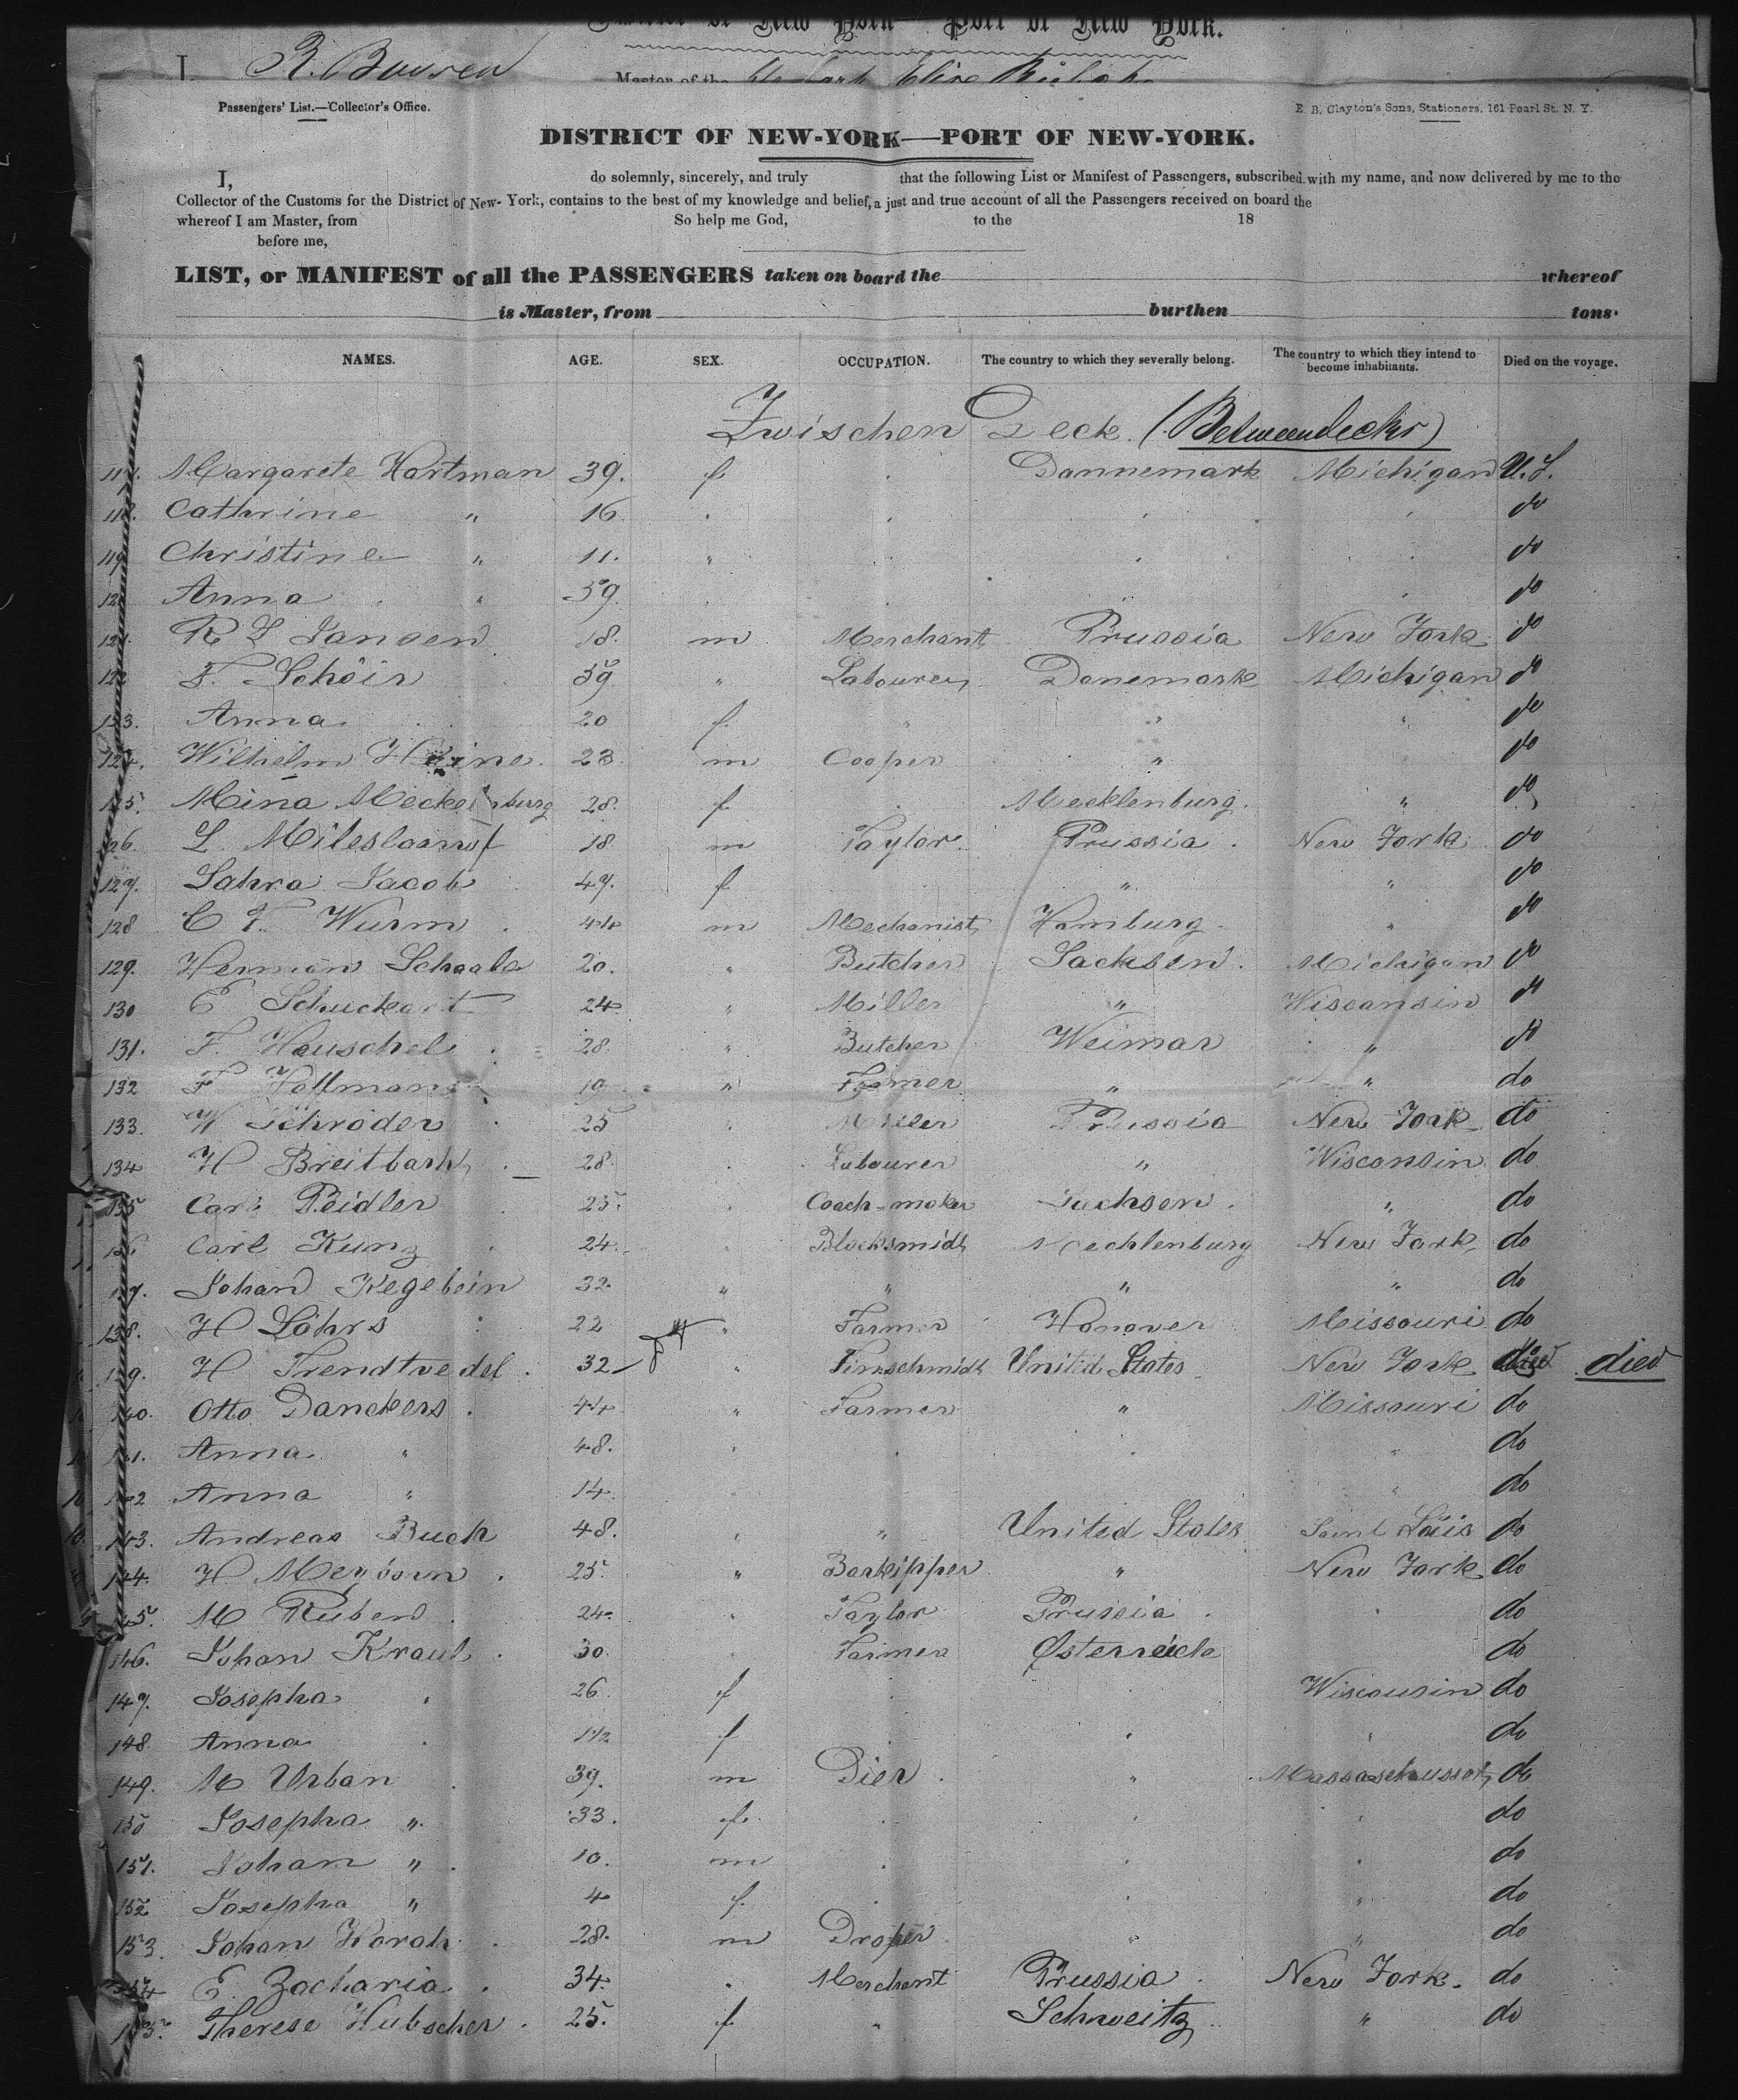 District of New York — Port of New York.
I, R. Boysen Master of the
Passengers' List.—Collector's Office. E. B. Clayton's Sons, Stationers, 161 Pearl St. N. Y.
DISTRICT OF NEW-YORK—PORT OF NEW-YORK.
I, do solemnly, sincerely, and truly that the following List or Manifest of Passengers, subscribed with my name, and now delivered by me to the
Collector of the Customs for the District of New-York, contains to the best of my knowledge and belief, a just and true account of all the Passengers received on board the
whereof I am Master, from So help me God, to the 18
before me,
LIST, or MANIFEST of all the PASSENGERS taken on board the whereof
is Master, from burthen tons.
NAMES. AGE. SEX. OCCUPATION. The country to which they severally belong. The country to which they intend to become inhabitants. Died on the voyage.
Zwischen Deck. (Betweendecks)
117. Margarete Hartman 39. f Dannemark Michigan U.S.
118. Cathrine " 16. do
119 Christine " 11. " do
120 Anna " 59. do
121. R L Jansen 18. m Merchant Prussia New York do
122 F. Schöir 59 " Labourer Danemark Michigan do
123. Anna 20 f. " " " do
124. Wilhelm Heine. 23 m Cooper " do
125. Mina Meckelnburg 28. f Mecklenburg. " do
126. L. 18. m Taylor Prussia New York do
127. Sahra Jacob 47. f " " do
128 C F. Wurm 44 m Mechanist Hamburg " do
129. Herman Schaale 20. " Butcher Sachsen. Michigan do
130 E Schuckart 24 " Miller " Wisconsin do
131. F. Heuschel 28. " Butcher Weimar " do
132 F Hoffman 19 " Farmer " " do
133. W Schröder 25 Miller Prussia New York do
134 H Breitbarth 28. Labourer " Wisconsin do
135 Carl Peidler 25. Coach-maker Sachsen. " do
136 Carl Kunz 24. Blocksmidt Mecklenburg New York do
137. Johan Kegebein 32. " " " " do
138. H Löhrs 22 " Farmer Hanover Missouri do
139. H Trendtvedel 32 " Tinnschmidt United States New York died
140. Otto Danckers 44. " Farmer " Missouri do
141. Anna " 48. " do
142 Anna " 14. " do
143. Andreas Buch 48. " United States Saint Louis do
144. H. Meyborn 25. " Barkipper " New York do
145. M Ruben 24. " Taylor Prussia do
146. Johan Kraul 30. Farmer Østerreich do
147. Josepha 26 f Wisconsin do
148. Anna 1 1/2 f " do
149. M Urban 39. m Dier " Massaschussets do
150 Josepha " 33. f. do
151. Johan " 10. m do
152 Josepha " 4 f. " do
153. Johan Horak 28. m Draper " " do
154 E. Zacharia 34. Merchant Prussia New York. do
155. Therese Hubscher 25. f " Schweitz " do